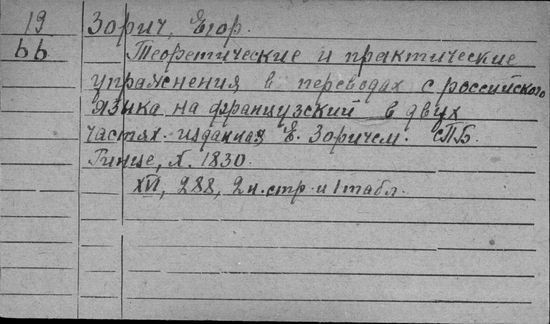 19 Зорич, Егор.
ЬЬ Теоретические и практические
упражнения в переводах с российского
языка на французский в двух
частях. изданная Е. Зоричем. СПБ.
Гинце, 1830.
XVI, 288, 2 н. стр. и 1 табл.